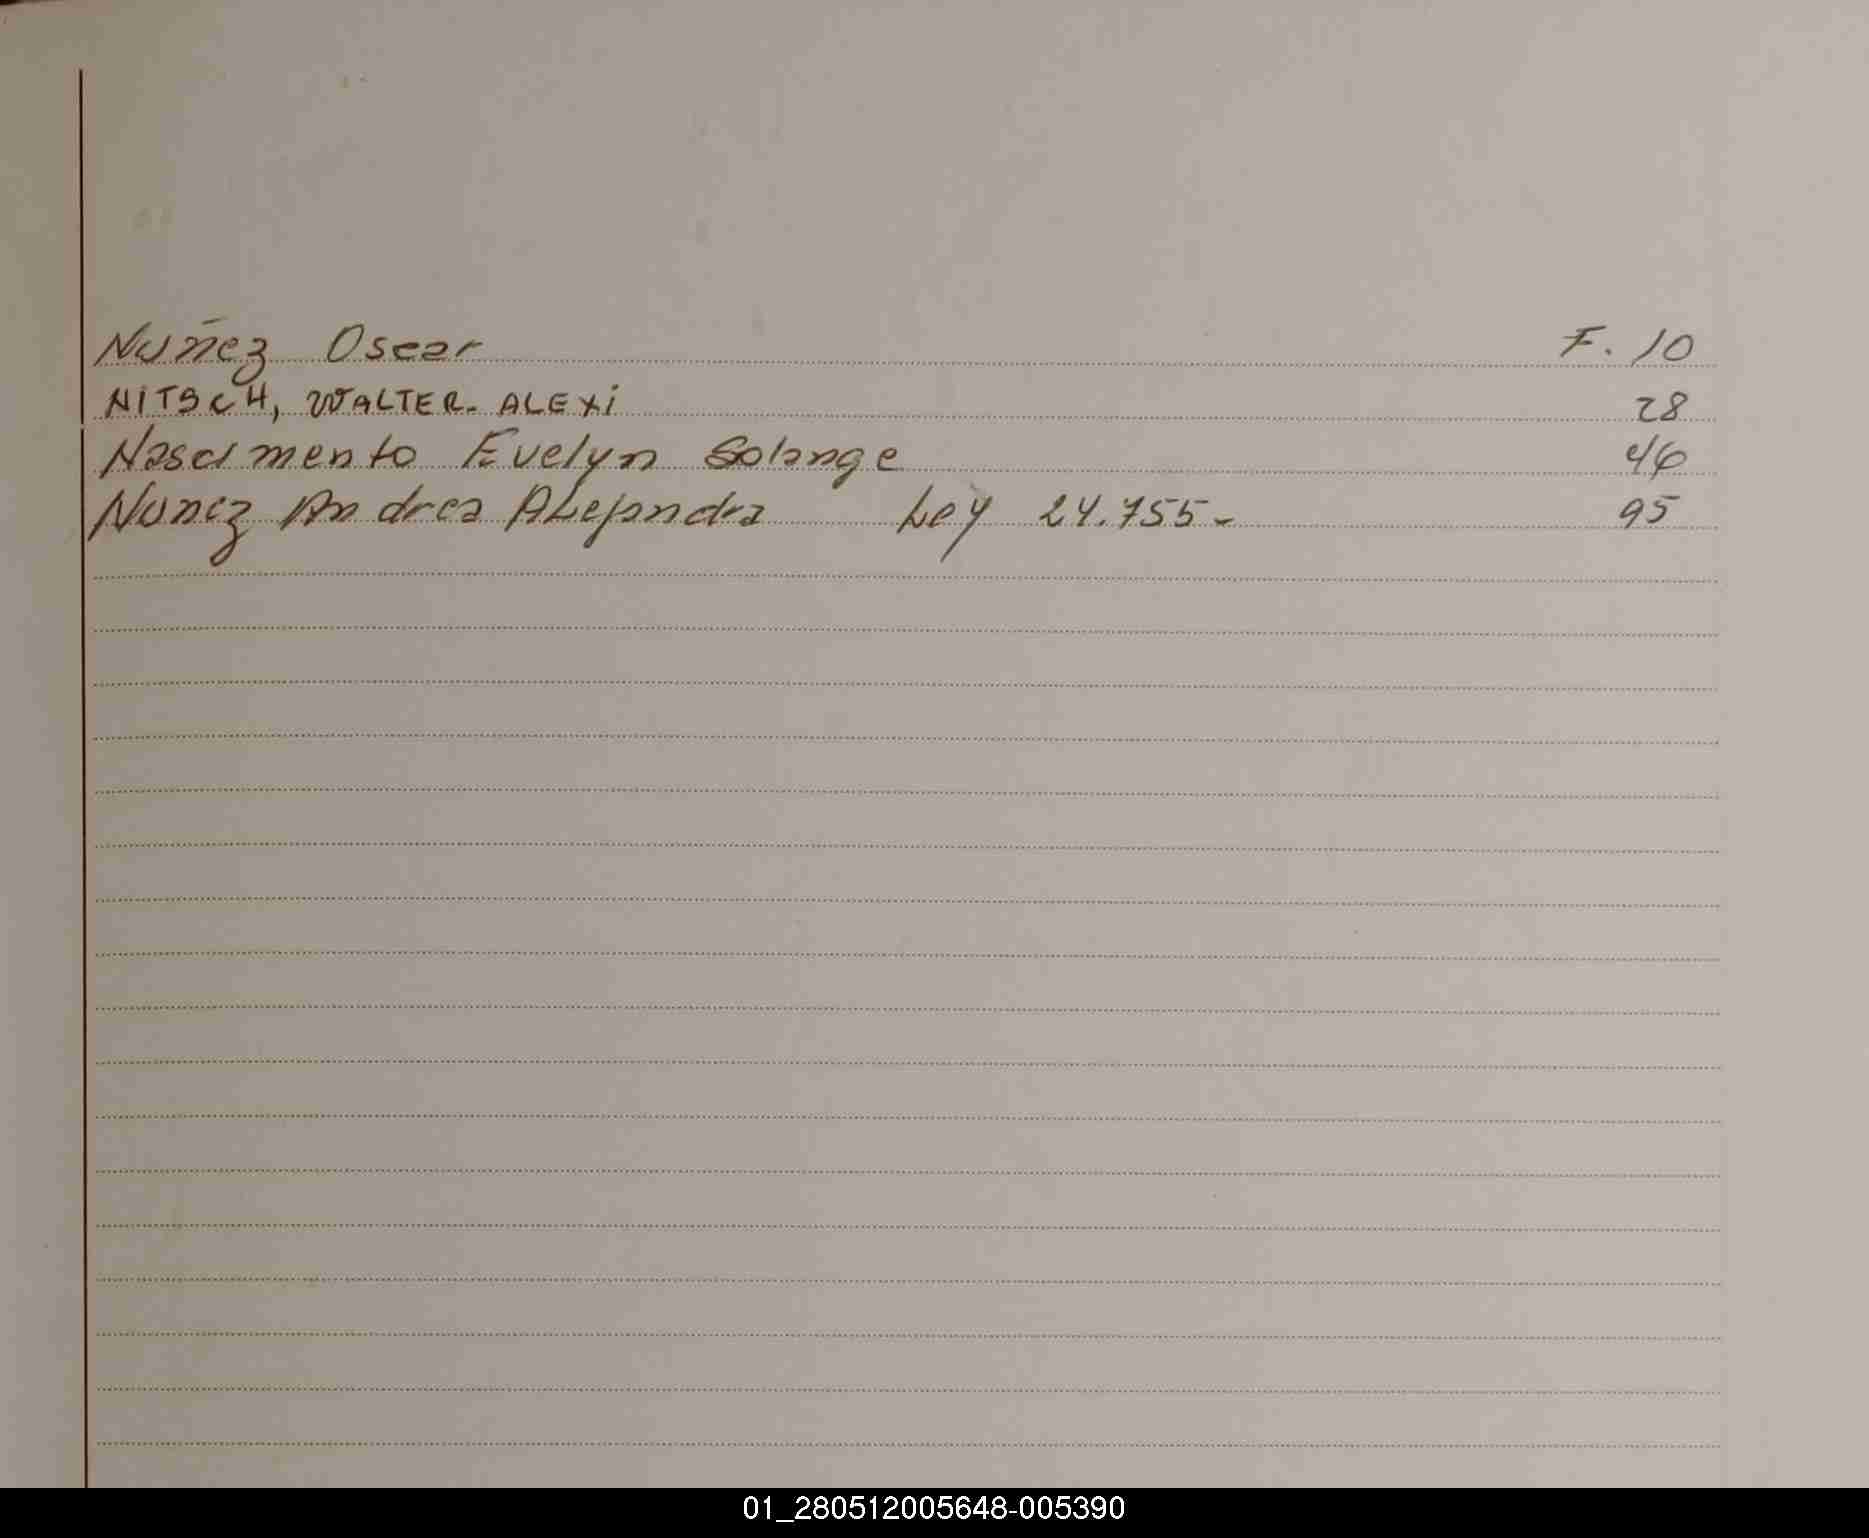 Nuñez Oscar F. 10
NITSCH, WALTER. ALEXi 28
Nascimento Evelyn Solange 46
Nunez Andrea ALejandra Ley 24.755- 95
01_280512005648-005390